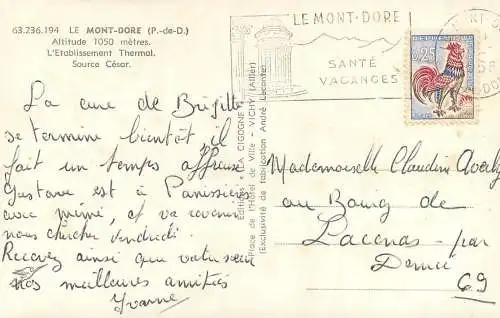 63.236.194 LE MONT-DORE (P.-de-D.)
Altitude 1050 mètres.
L'Etablissement Thermal.
Source César.
LE MONT-DORE
SANTÉ
VACANCES
0,25
La cure de Brigitte
se termine bientôt il
fait un temps affreuse
Gustave est à Panissières
avec mémé, et va revenir
nous chercher vendredi.
Recevez ainsi que
nos meilleures amitiés
Yvonne
Editions « LA CIGOGNE »
Place de l'Hôtel de Ville - VICHY (Allier)
(Exclusivité de fabrication André Leconte)
Mademoiselle Claudine
au Bourg de
Lacenas - par
Denicé
69